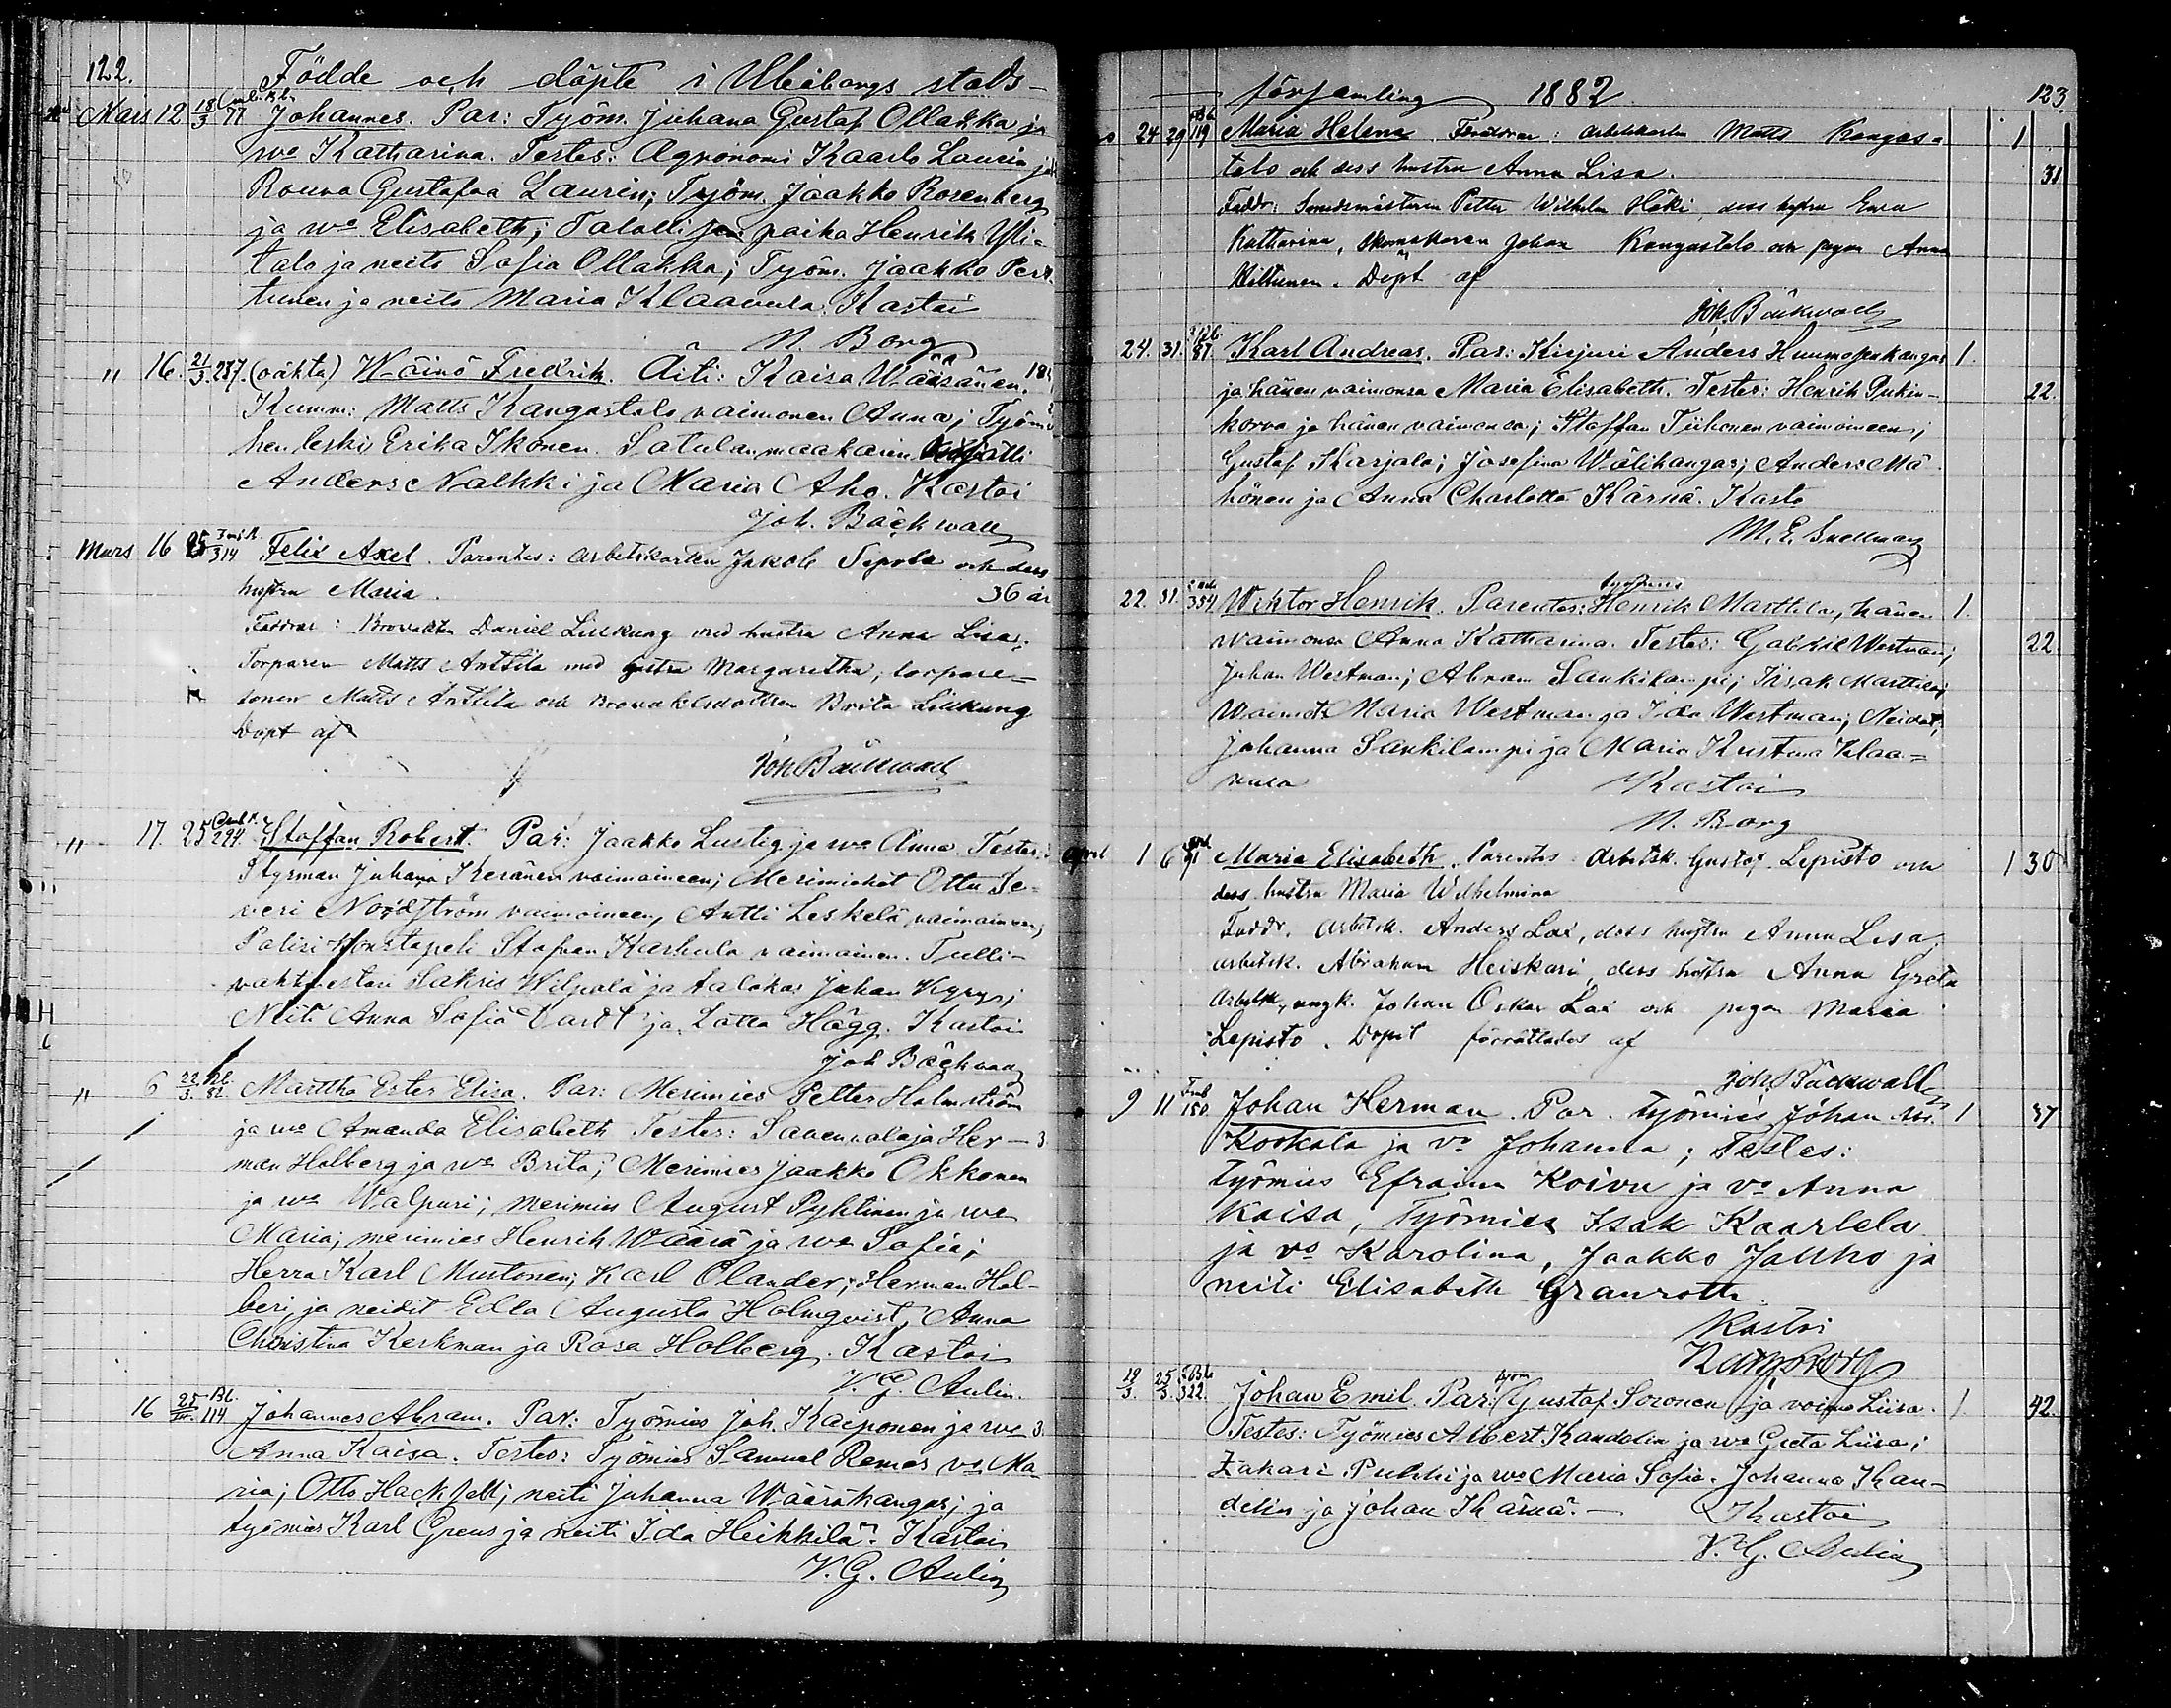 122.
Födde och döpte i Uleåborgs stads-
Mars 12 18/3 77 Johannes. Par: Työm. Juhana Gustaf Ollakka ja
wo Katharina. Testes: Agronomi Kaarlo Laurin ja
Rouva Gustafva Laurin; Työm. Jaakko Rosenberg
ja wo Elisabeth; Talolli poika Henrik Yli-
talo ja neito Sofia Ollakka; Työm. Jaakko Pert-
tunen ja neito Maria Klaavula. Kastoi
N. Borg
" 16. 21/3. 287. (oäkta) Wäinö Fredrik. Äiti: Kaisa Wääsänen.
Kumm: Matts Kangastalo vaimonen Anna; Työm
hen leski Erika Ikonen. Satulanmaakarin
Anders Nalkki ja Maria Aho. Kastoi
Joh. Bäckwall
Mars 16 25 314 Felix Axel. Parentes: arbetskarlen Jakob Sipola och dess
hustru Maria. 36 år
Faddrar: Daniel Linkung med hustru Anna Lisa;
Torparen Matts Anttila med hustru Margaretha; torpare-
sonen Matts Anttila och Brita Linkung
Döpt af
Joh Bäckwall
" 17. 25 294. Staffan Robert. Par: Jaakko Lustig ja wo Anna. Testes:
Styrman Juhana Keränen vaimoineen; Merimiehet Otto Se-
veri Nordström vaimoineen, Antti Leskelä vaimoineen;
Polisi Konstapeli Stefan Karhula vaimoineen. Tulli-
vahtmestari Sakris Wilpola ja talokas Juhan Kyrys;
Neiti Anna Sofia ja Lotta Hägg. Kastoi
Joh Bäckwall
" 6 22/3. 82. Martha Ester Elisa. Par: Merimies Petter Holmström
ja wo Amanda Elisabeth Testes: Her- 3
man Holberg ja wo Brita; Merimies Jaakko Okkonen
ja wo Walpuri; merimies August Pyhtinen ja wo
Maria; merimies Henrik Wäärä ja wo Sofia;
Herra Karl Mustonen; Karl Olander; Herman Hol-
beri ja neidit Edla Augusta Holmqvist, Anna
Christina Kerkman ja Rosa Holberg. Kastoi
V. G. Aulin.
16 25 Bl. 114 Johannes Abram. Par: Työmies Joh. Kaeponen ja wo 3
Anna Kaisa. Testes: Työmies Samuel Remes vo Ma-
ria; Otto Hackzell; neiti Juhanna Wääräkangas; ja
työmies Karl Grens ja neiti Ida Heikkilä. Kastoi
V. G. Aulin
församling 1882. 123
24 29 119 Maria Helena Föräldrar: arbetskarlen Matts Kangas- 1
talo och dess hustru Anna Lisa. 31
Faddr: Petter Wilhelm Häki, dess hustru Ewa
Katharina, skomakaren Johan Kangastalo och pigan Anna
Hiltunen. Döpt af
Joh. Bäckwall
24. 31. 87 Karl Andreas. Par: Kirjuri Anders Huumosenkangas 1.
ja hänen vaimonsa Maria Elisabeth. Testes: Henrik Pukin- 22.
korva ja hänen vaimonsa; Staffan Tiihonen vaimoineen;
Gustaf Karjala; Josefina Wälikangas; Anders Mä-
hönen ja Anna Charlotta Kärnä. Kasto
M. E. Snellman
22. 31. 354 Wiktor Henrik. Parentes: työmies Henrik Marttila, hänen 1.
waimonsa Anna Katharina. Testes: Gabriel Westman; 22
Juhan Westman; Abram Sankilampi; Iisak Marttila;
Waimot Maria Westman ja Ida Westman; Neidet;
Johanna Sankilampi ja Maria Kristina Klaa-
vula Kastoi
N. Borg
April 1 6 91 Maria Elisabeth. Parentes: Arbetsk. Gustaf Lepisto och 1 30
dess hustru Maria Wilhelmina
Faddr. Arbetsk. Anders Lax, dess hustru Anna Lisa;
arbetsk. Abraham Heiskari, dess hustru Anna Greta
Arbetsk, ungk. Johan Oskar Lax och pigan Maria
Lepisto. Dopet förrättades af
Joh. Bäckwall
9 11 150. Johan Herman. Par. Työmies Johan 1 37
Kookala ja vo Johanna; Testes:
Työmies Efraim Koivu ja vo Anna
Kaisa, Työmies Isak Kaarlela
ja vo Karolina, Jaakko Jaakko ja
neiti Elisabeth Granroth.
Kastoi
19/3. 25/3. 322. Johan Emil. Par: työm Gustaf Soronen ja vaimo Liisa. 1. 42.
Testes: Työmies Albert Kandelin ja wo Greta Liisa;
Zakari Puhki ja wo Maria Sofia. Johanna Kan-
delin ja Johan Kärnä. - Kastoi
V. G. Aulin